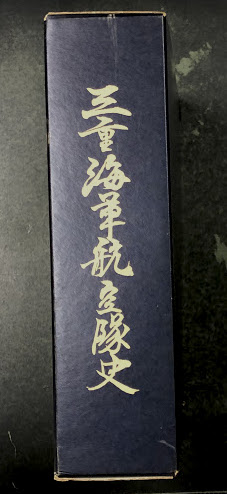 三重海軍航空隊史